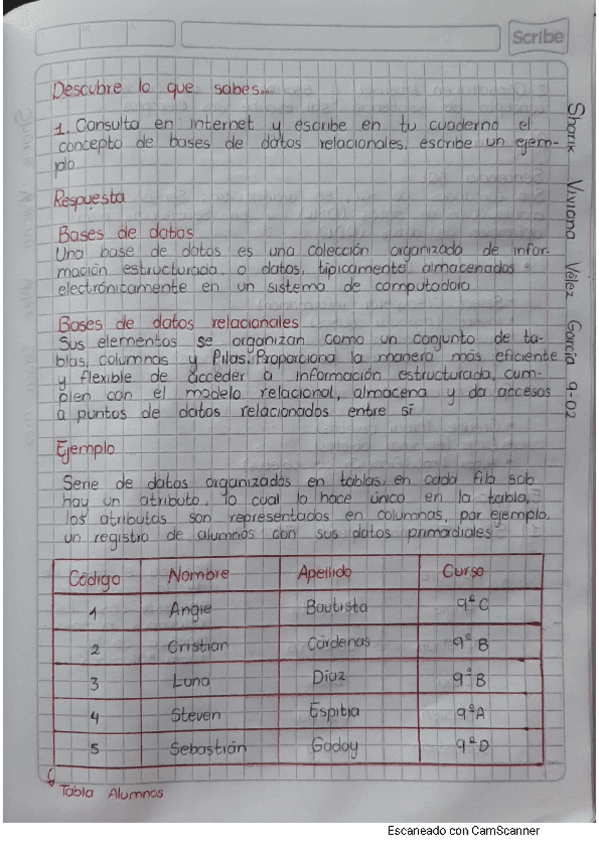 Scribe
Descubre lo que sabes...
1. Consulta en internet y escribe en tu cuaderno el
concepto de bases de datos relacionales, escribe un ejem-
plo
Respuesta
Bases de datos
Una base de datos es una colección organizada de infor-
mación estructurada, o datos, típicamente almacenados
electrónicamente en un sistema de computadora
Bases de datos relacionales
Sus elementos se organizan como un conjunto de ta-
blas, columnas y filas. Proporciona la manera más eficiente
y flexible de acceder a información estructurada, cum-
plen con el modelo relacional, almacena y da accesos
a puntos de datos relacionados entre sí
Ejemplo
Serie de datos organizados en tablas, en cada fila sob
hay un atributo, lo cual lo hace único en la tabla,
los atributos son representados en columnas, por ejemplo,
un registro de alumnos con sus datos primordiales
Código Nombre Apellido Curso
1 Angie Bautista 9°C
2 Cristian Cárdenas 9°B
3 Luna Díaz 9°B
4 Steven Espitia 9°A
5 Sebastián Godoy 9°D
Tabla Alumnos
Sharik Viviana Vélez García 9-02
Escaneado con CamScanner